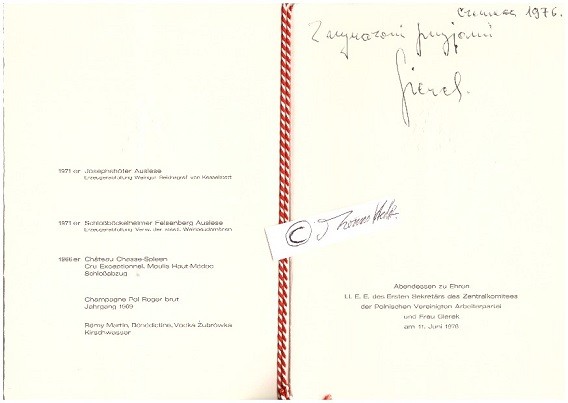 1971 er Josephshöfer Auslese
Erzeugerabfüllung Weingut Reichsgraf von Kesselstatt
1971 er Schloßböckelheimer Felsenberg Auslese
Erzeugerabfüllung Verw. der staatl. Weinbaudomänen
1966 er Château Chasse-Spleen
Cru Exceptionnel, Moulis Haut-Médoc
Schloßabzug
Champagne Pol Roger brut
Jahrgang 1969
Rémy Martin, Bénédictine, Vodka Żubrówka
Kirschwasser
Czerwiec 1976.
Z wyrazami przyjaźni
Gierek.
© Thomas
Abendessen zu Ehren
I.I. E. E. des Ersten Sekretärs des Zentralkomitees
der Polnischen Vereinigten Arbeiterpartei
und Frau Gierek
am 11. Juni 1976